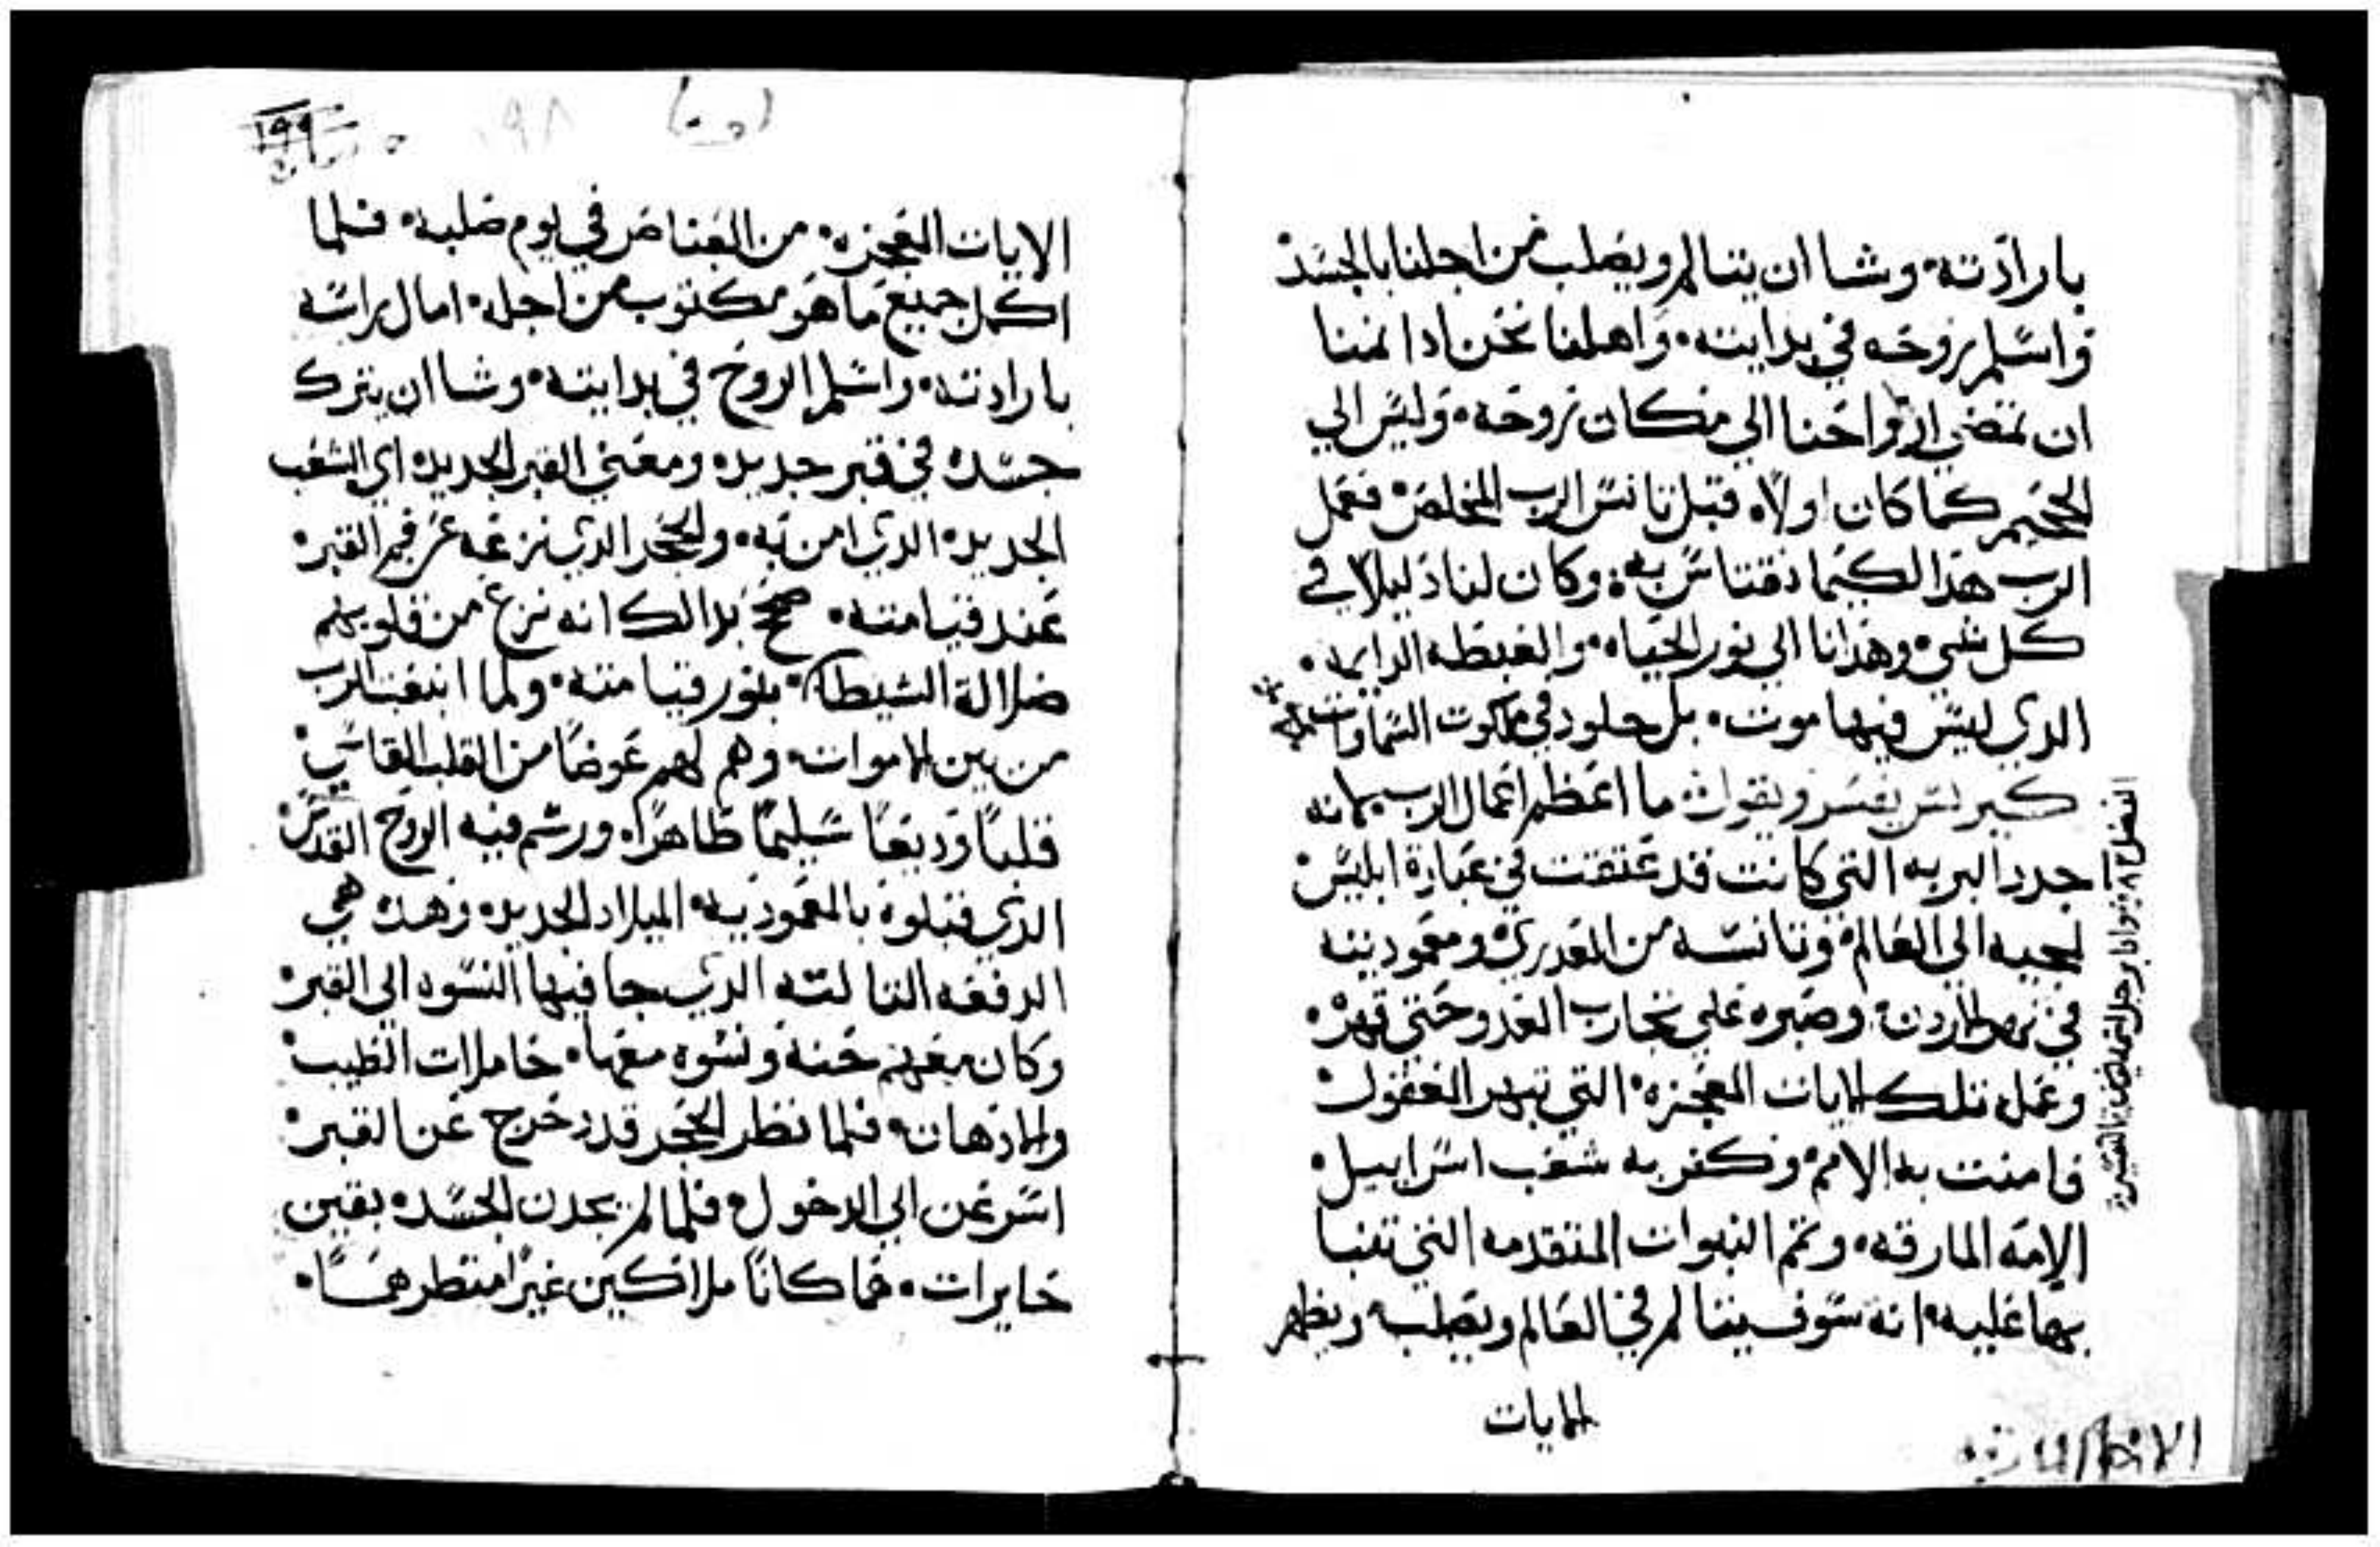 بارادته وشا ان يتالم ويصلب من اجلنا بالجسد
واسلم روحه في يد ابيته واهلنا نحن اذا نمنا
ان تمضي ارواحنا الي مكان روحه وليس الي
الجحيم كما كان اولاه قبل تانس الرب المخلص فعمل
الرب هذا لكيما نقتاس به وكان لنا دليلا في
كل شي وهدانا الي نور الحياه والغبطه الدايمه
الذي ليس فيها موت بل خلود في ملكوت السماوات
كيرلس يفسر ويقول ما اعظم اعمال الرب يمانه
جدد البريه التي كانت قد عتقت في عبارة ابليس
لمجيه الي العالم وتانسه من العدري ومعموديته
في نهر الاردن وصبره علي تجارب العدو حتي قهره
وعمل تلك الايات المعجزه التي تبهر العقول
فامنت به الامم وكفر به شعب اسراييل
الامه المارقه وتمم النبوات المتقدمه التي تنبا
بها عليه انه سوف يتالم في العالم ويصلب ويظهر
الايات
١٩٨
١٩٩
الايات المعجزه من العناصر في يوم صلبه فلما
اكمل جميع ما هو مكتوب من اجله امال براسه
بارادته واسلم الروح في يد ابيته وشا ان يترك
جسده في قبر جديد ومعني القبر الجديد اي الشعب
الجديد الذي امن به والحجر الذي نزعه عن فم القبر
عند قيامته صح بدالك انه نزع من قلوبهم
ضلالة الشيطان بنور قيامته ولما انبعث الرب
من بين الاموات وهم لهم عوضا من القلب القاسي
قلبا وديعا سليما طاهرا ورسم فيه الروح القدس
الذي قبلوه بالمعموديه الميلاد الجديد وهذه هي
الدفعه التالته الذي جا فيها النسوه الي القبر
وكان معهم حنه ونسوه معها حاملات الطيب
والادهان فلما نظر الحجر قد دحرج عن القبر
اسرعن الي الدخول فلما لم يجدن الجسد بقين
حايرات فما كانا ملاكين غير امنظرهما